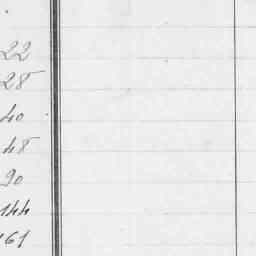 22
28
40
48
90
144
161